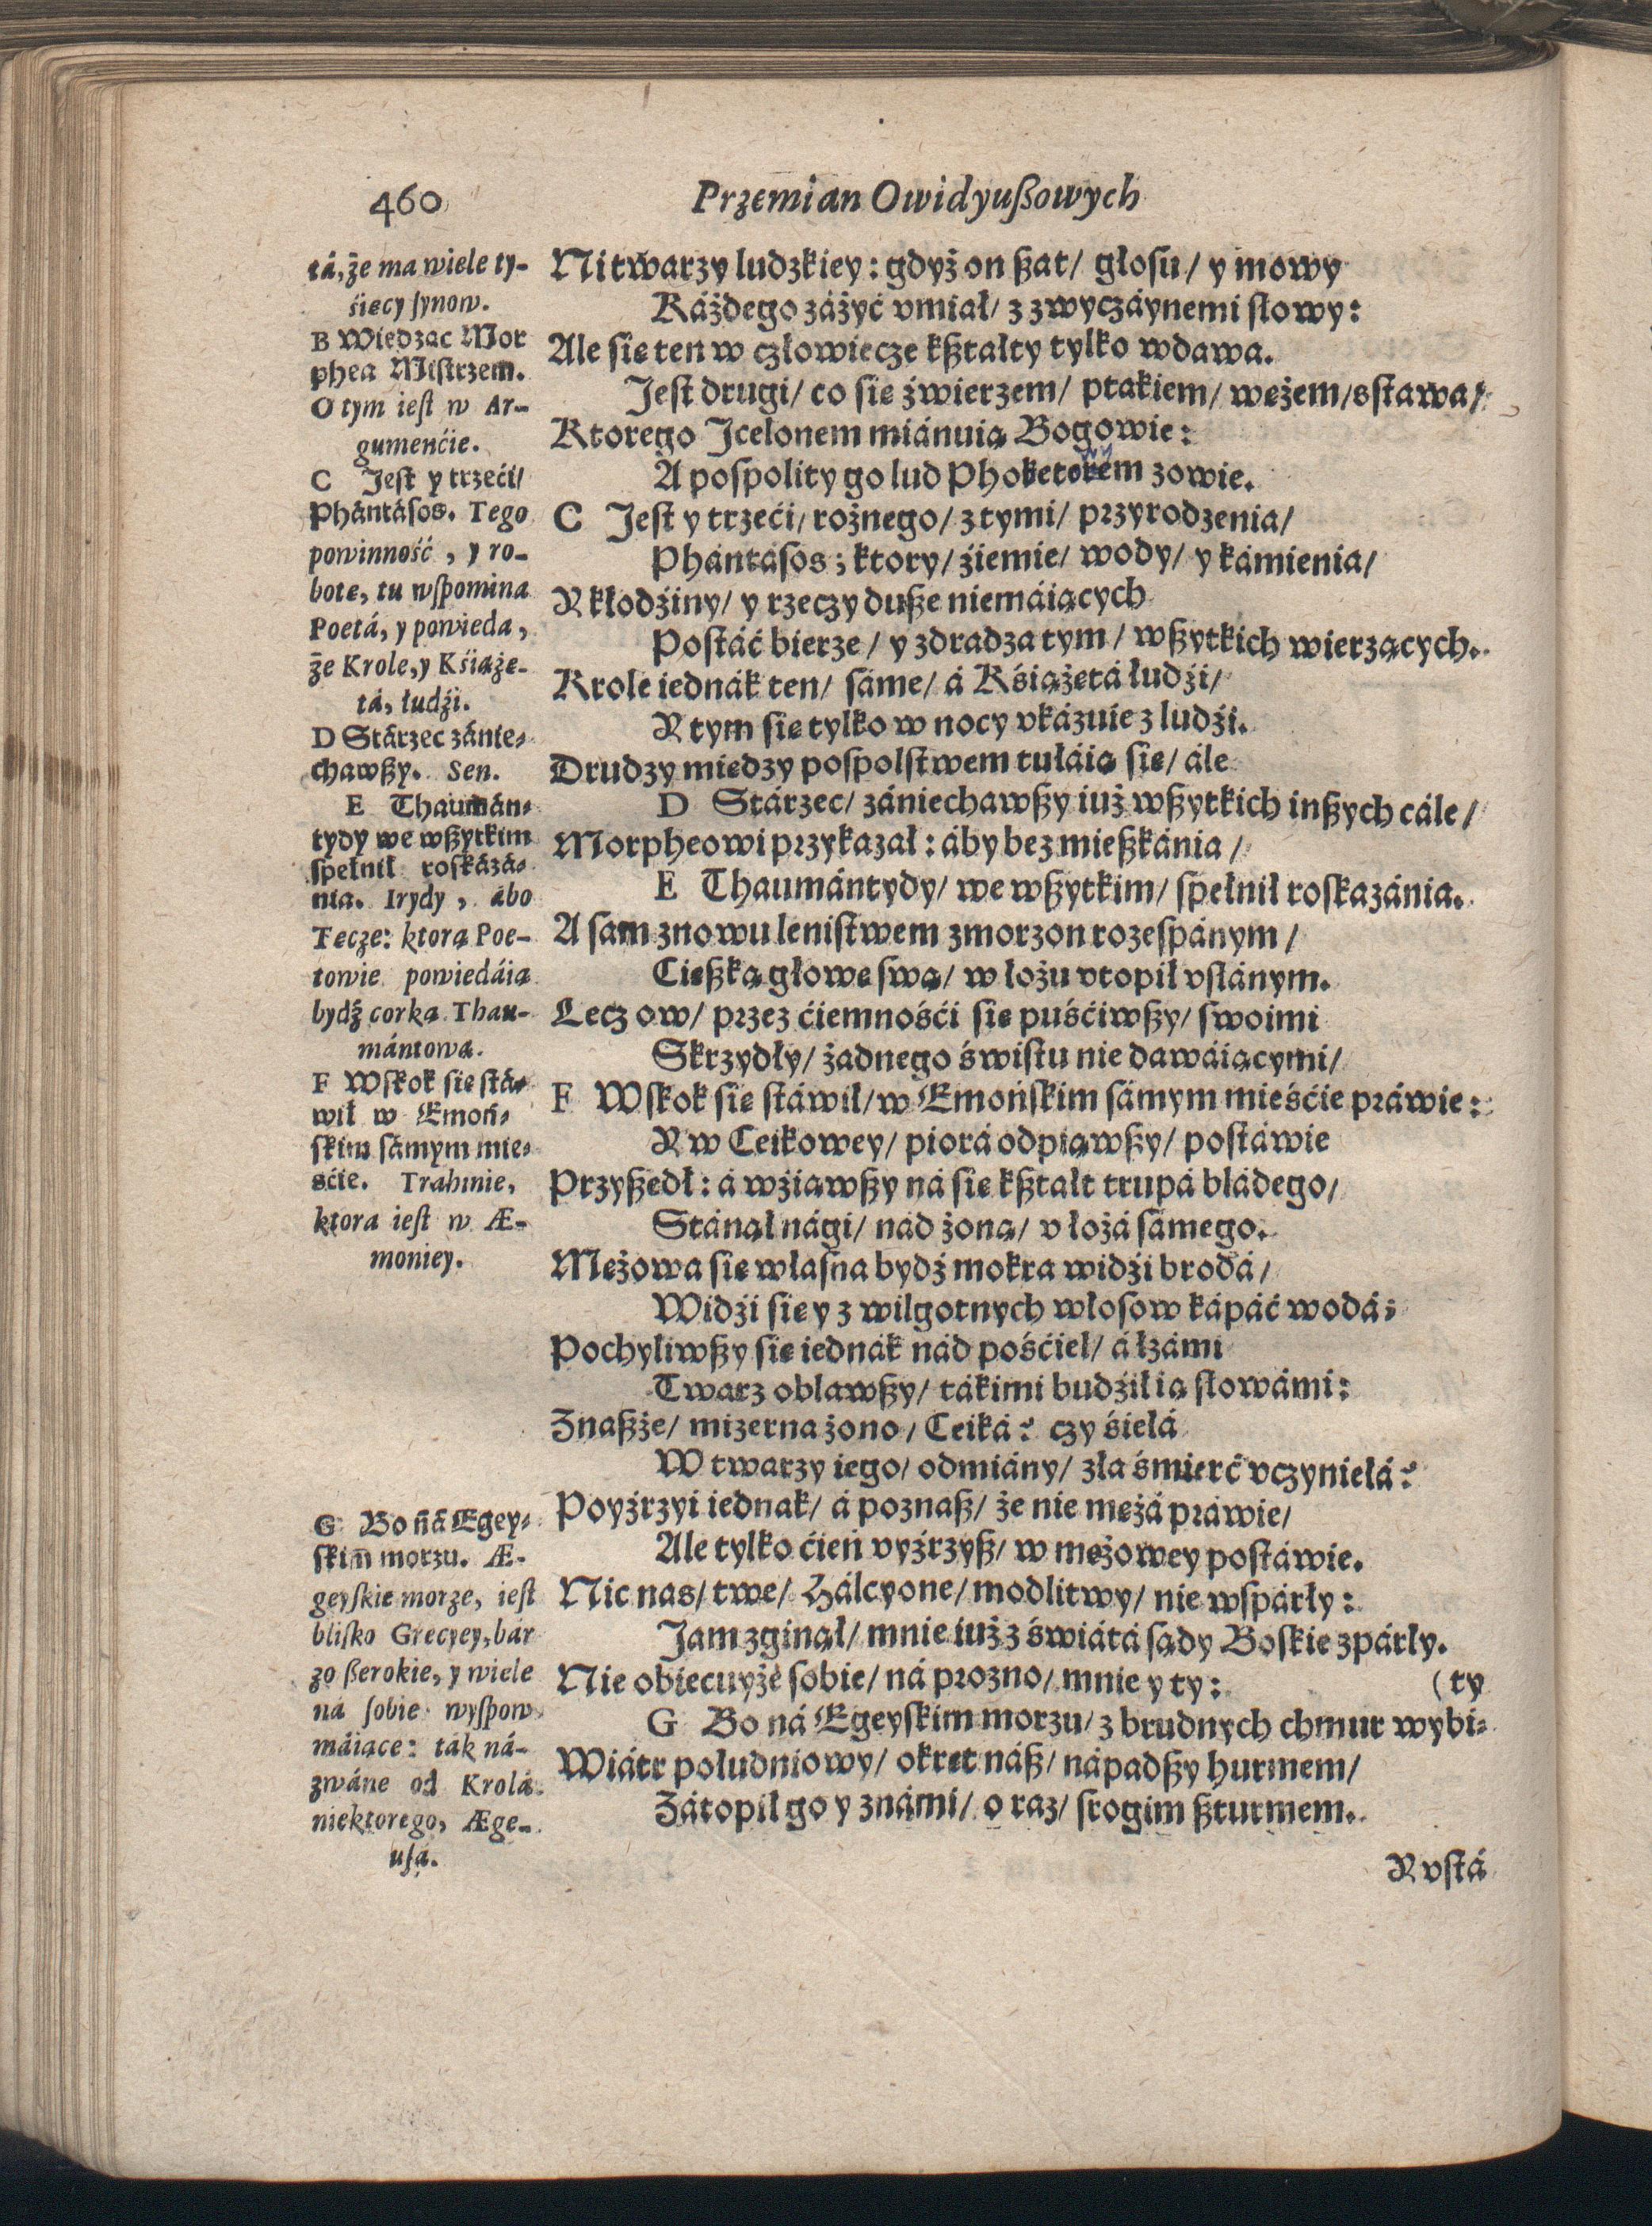 460
Przemian Owidyußowych
tá, że ma wiele ty-
śięcy synow.
B Wiedząc Mor
phea Mistrzem.
O tym iest w Ar-
gumenćie.
C Jest y trzeći/
Phántásos. Tego
powinność, y ro-
botę, tu wspomina
Poetá, y powieda,
że Krole, y Kśiążę-
tá, łudźi.
D Stárzec zánie-
chawßy. Sen.
E Thaumán-
tydy we wßytkim
spełnił roskázá-
nia. Irydy, ábo
Tęcze: ktorą Poe-
towie powiedáią
bydź corką Thau-
mántową.
F Wskok się stá-
wił w Emoń-
skim sámym mie-
śćie. Tráhinie,
ktora iest w Æ-
moniey.
G Bo ná Egey-
skim morzu. Æ-
geyskie morze, iest
blisko Grecyey, bár
zo ßerokie, y wiele
ná sobie wyspow
máiące: ták ná-
zwáne od Krolá
niektorego, Æge-
usá.
Ni twarzy ludzkiey: gdyż on ßat/ głosu/ y mowy
Káżdego záżyć vmiał/ z zwyczáynemi słowy:
Ale się ten w człowiecze kßtałty tylko wdawa.
Jest drugi/ co się źwierzem/ ptakiem/ wężem/ sstawa/
Ktorego Jcelonem miánuią Bogowie:
A pospolity go lud Phobetorem zowie.
C Jest y trzeći/ rożnego/ z tymi/ przyrodzenia/
Phántásos; ktory/ źiemie/ wody/ y kámienia/
Y kłodźiny/ y rzeczy duße niemáiących
Postáć bierze/ y zdradza tym/ wßytkich wierzących.
Krole iednák ten/ sáme/ á Kśiążętá łudźi/
Y tym się tylko w nocy vkázuie z ludźi.
Drudzy między pospolstwem tułáią się/ ále
D Stárzec/ zániechawßy iuż wßytkich inßych cále/
Morpheowi przykazał: áby bez mießkánia/
E Thaumántydy/ we wßytkim/ spełnił roskazánia.
A sam znowu lenistwem zmorzon rozespánym/
Cięßką głowę swą/ w łożu vtopił vsłánym.
Lecz ow/ przez ćiemnośći się puśćiwßy/ swoimi
Skrzydły/ żadnego świstu nie dawáiącymi/
F Wskok się stáwił/ w Emońskim sámym mieśćie práwie:
Y w Ceikowey/ piorá odpiąwßy/ postáwie
Przyßedł: á wźiąwßy ná się kßtałt trupá bládego/
Stánął nági/ nád żoną/ v łożá sámego.
Mężowa się własna bydź mokra widźi brodá/
Widźi się y z wilgotnych włosow kápáć wodá;
Pochyliwßy się iednák nád pośćiel/ á łzámi
Twarz oblawßy/ tákimi budźił ią słowámi:
Znaßże/ mizerna żono/ Ceiká? czy śiełá
W twarzy iego/ odmiány/ zła śmierć vczyniełá?
Poyźrzyi iednak/ á poznaß/ że nie mężá práwie/
Ale tylko ćień vyźrzyß/ w mężowey postáwie.
Nic nas/ twe/ Hálcyone/ modlitwy/ nie wspárły:
Jam zginął/ mnie iuż z świátá sądy Boskie zpárły.
Nie obiecuyże sobie/ ná prozno/ mnie y ty:
(ty
G Bo ná Egeyskim morzu/ z brudnych chmur wybi-
Wiátr południowy/ okręt náß/ nápadßy hurmem/
Zátopił go y známi/ o raz/ srogim ßturmem.
Y vstá